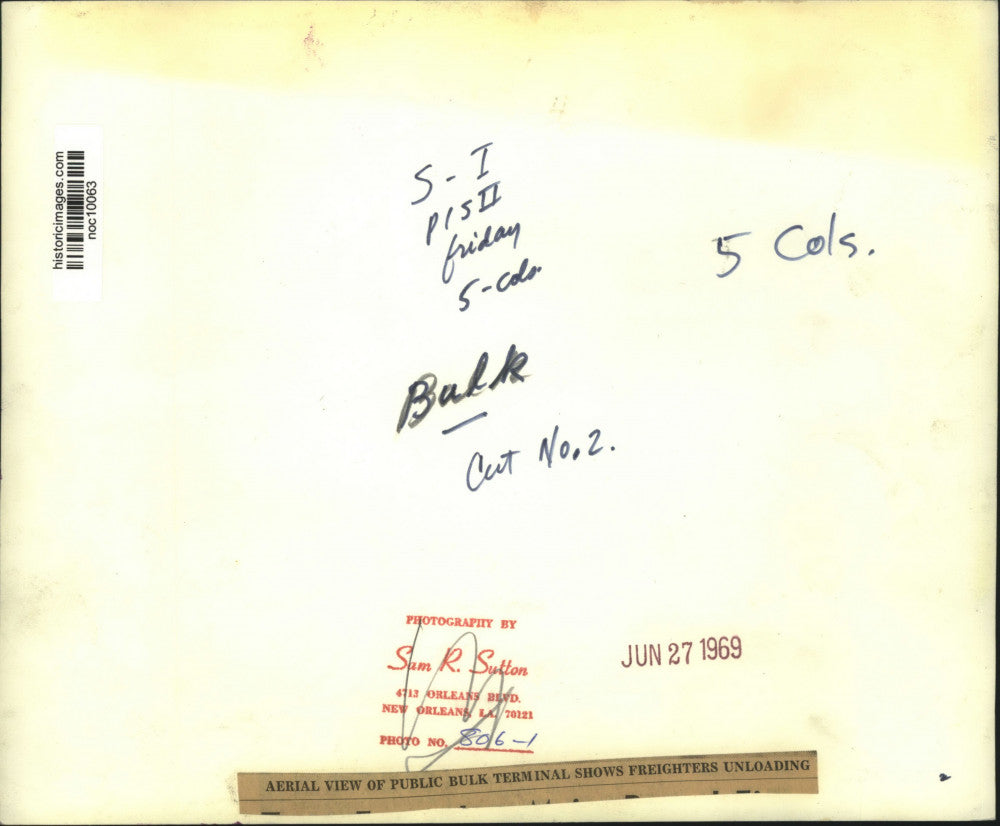 historicimages.com
noc10063
S - I
P 1 S II
friday
5 - cols.
5 Cols.
Bulk
Cut No. 2.
PHOTOGRAPHY BY
Sam R. Sutton
4713 ORLEANS BLVD.
NEW ORLEANS, LA. 70121
PHOTO NO. 806-1
JUN 27 1969
AERIAL VIEW OF PUBLIC BULK TERMINAL SHOWS FREIGHTERS UNLOADING
2